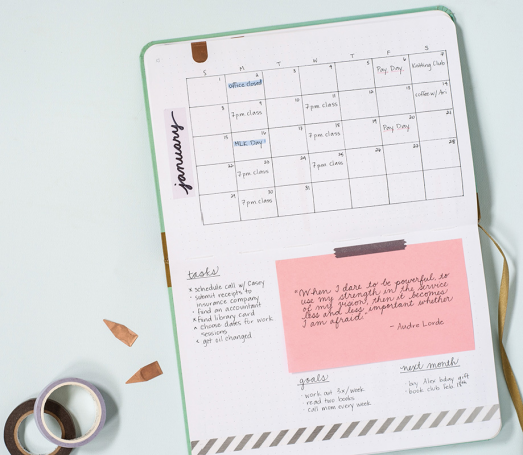 S M T W T F S
1 2 3 4 5 6 7
office closed Pay Day Knitting Club
8 9 10 11 12 13 14
7pm class 7pm class coffee w/
15 16 17 18 19 20 21
MLK Day 7pm class Pay Day
22 23 24 25 26 27 28
7pm class 7pm class
29 30 31
7pm class
january
tasks
x schedule call w/ Casey
- submit receipts to
insurance company
- find an accountant
x find library card
x choose dates for work
sessions
x get oil changed
"When I dare to be powerful, to
use my strength in the service
of my vision, then it becomes
less and less important whether
I am afraid."
- Audre Lorde
goals
- work out 3x/week
- read two books
- call mom every week
next month
- buy Alex bday gift
- book club Feb 18th